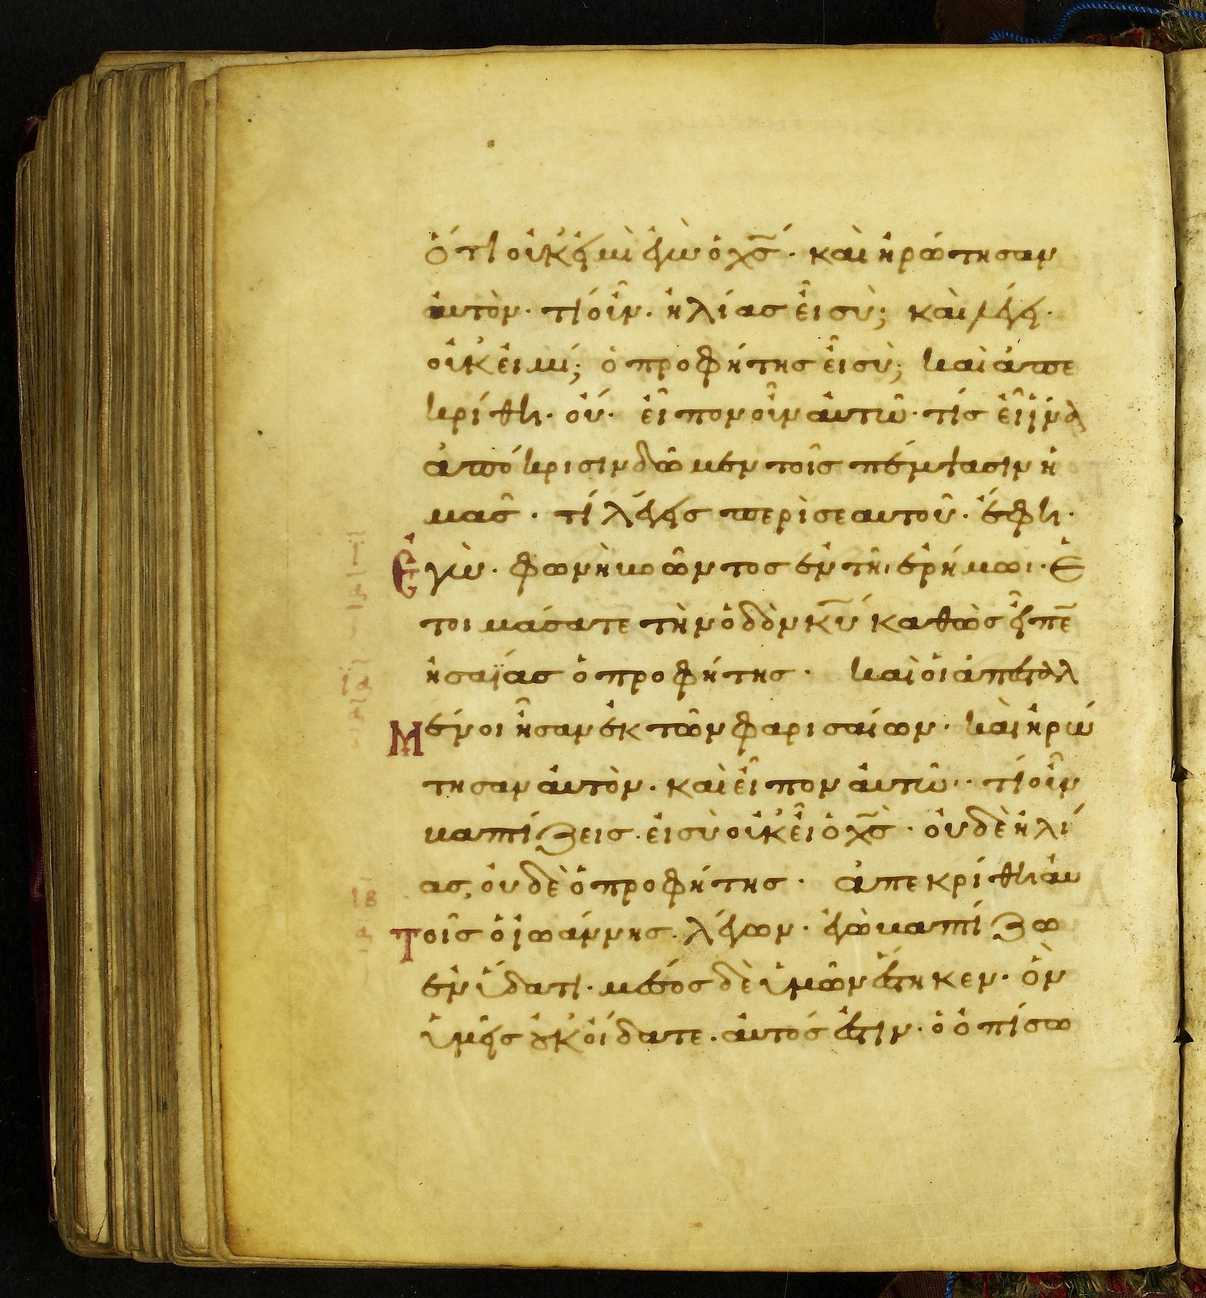 ὅτι οὐκ εἰμὶ ἐγὼ ὁ χς̅· καὶ ἠρώτησαν
αὐτὸν· τί οὖν· ἠλίας εἶ σὺ; καὶ λέγει·
οὐκ εἰμί; ὁ προφήτης εἶ σὺ; καὶ ἀπε
κρίθη· οὔ· εἶπον οὖν αὐτῶ· τίς εἶ ἵνα
ἀπόκρισιν δῶμεν τοῖς πέμψασιν ἡ
μας· τί λέγεις περὶ σεαυτοῦ· ἔφη·
Ἐγὼ· φωνὴ βοῶντος ἐν τῆ ἐρήμωι· Ἑ
τοιμάσατε τὴν ὁδὸν κυ̅ καθὼς εἶπε̅
ἠσαΐας ὁ προφήτης· καὶ οἱ ἀπεσταλ
Μένοι ἦσαν ἐκ τῶν φαρισαίων· καὶ ἠρώ
τησαν αὐτὸν· καὶ εἶπον αὐτῶ· τί οὖν
βαπτίζεις· εἰ σὺ οὐκ εἶ ὁ χς̅· οὐδὲ ἠλί
ας, οὐδὲ ὁ προφήτης· ἀπεκρίθη αὐ
Τοῖς ὁ ἰωάννης· λέγων· ἐγὼ βαπτίζω
ἐν ὕδατι· μέσος δὲ ὑμῶν ἕστηκεν· ὃν
ὑμεῖς οὐκ οἴδατε· αὐτός ἐστιν· ὁ ὀπίσω